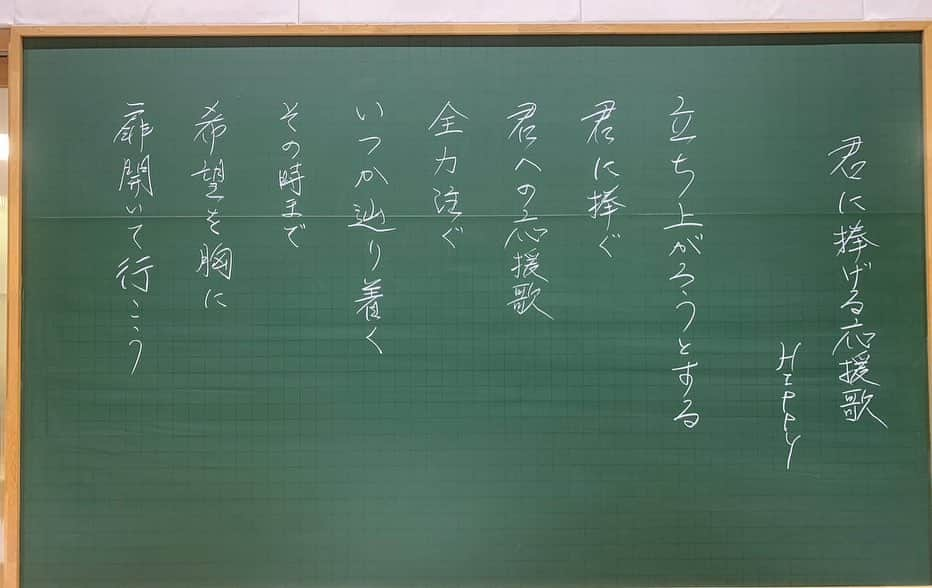 君に捧げる応援歌
HIPPY
立ち上がろうとする
君に捧ぐ
君への応援歌
全力注ぐ
いつか辿り着く
その時まで
希望を胸に
扉開いて行こう